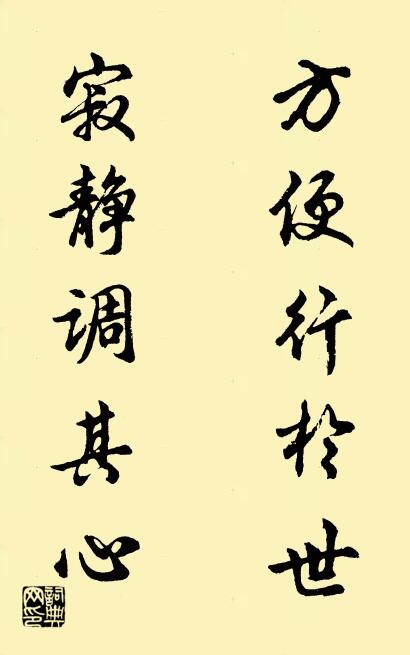 方便行於世
寂静调其心
詞典网印